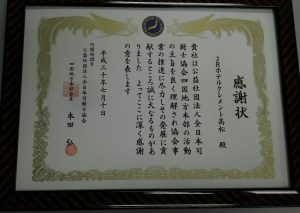 感謝状
JRホテルクレメント高松 殿
貴社は公益社団法人全日本司
厨士協会四国地方本部の活動
の主旨を良く理解され協会事
業の推進に尽力しその発展に貢
献するところ誠に大なるものがあ
りました よってここに深く感謝
の意を表します
平成三十年七月十日
内閣府認定
公益社団法人全日本司厨士協会
四国地方本部会長
本田 弘